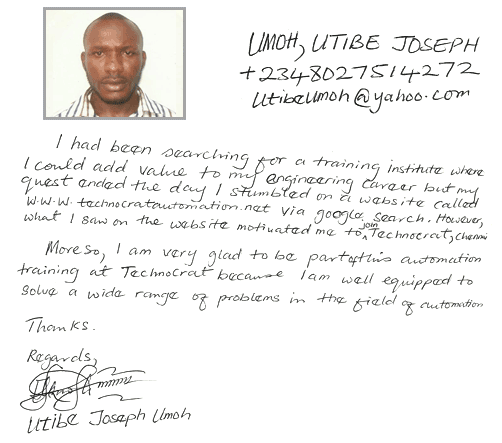 UMOH, UTIBE JOSEPH
+2348027514272
utibeumoh@yahoo.com
I had been searching for a training institute where
I could add value to my engineering career but my
quest ended the day I stumbled on a website called
w.w.w. technocratautomation.net via google search. However,
what I saw on the website motivated me to join Technocrat, chennai
Moreso, I am very glad to be part of this automation
training at Technocrat because I am well equipped to
solve a wide range of problems in the field of automation
Thanks.
Regards,
Utibe Joseph Umoh